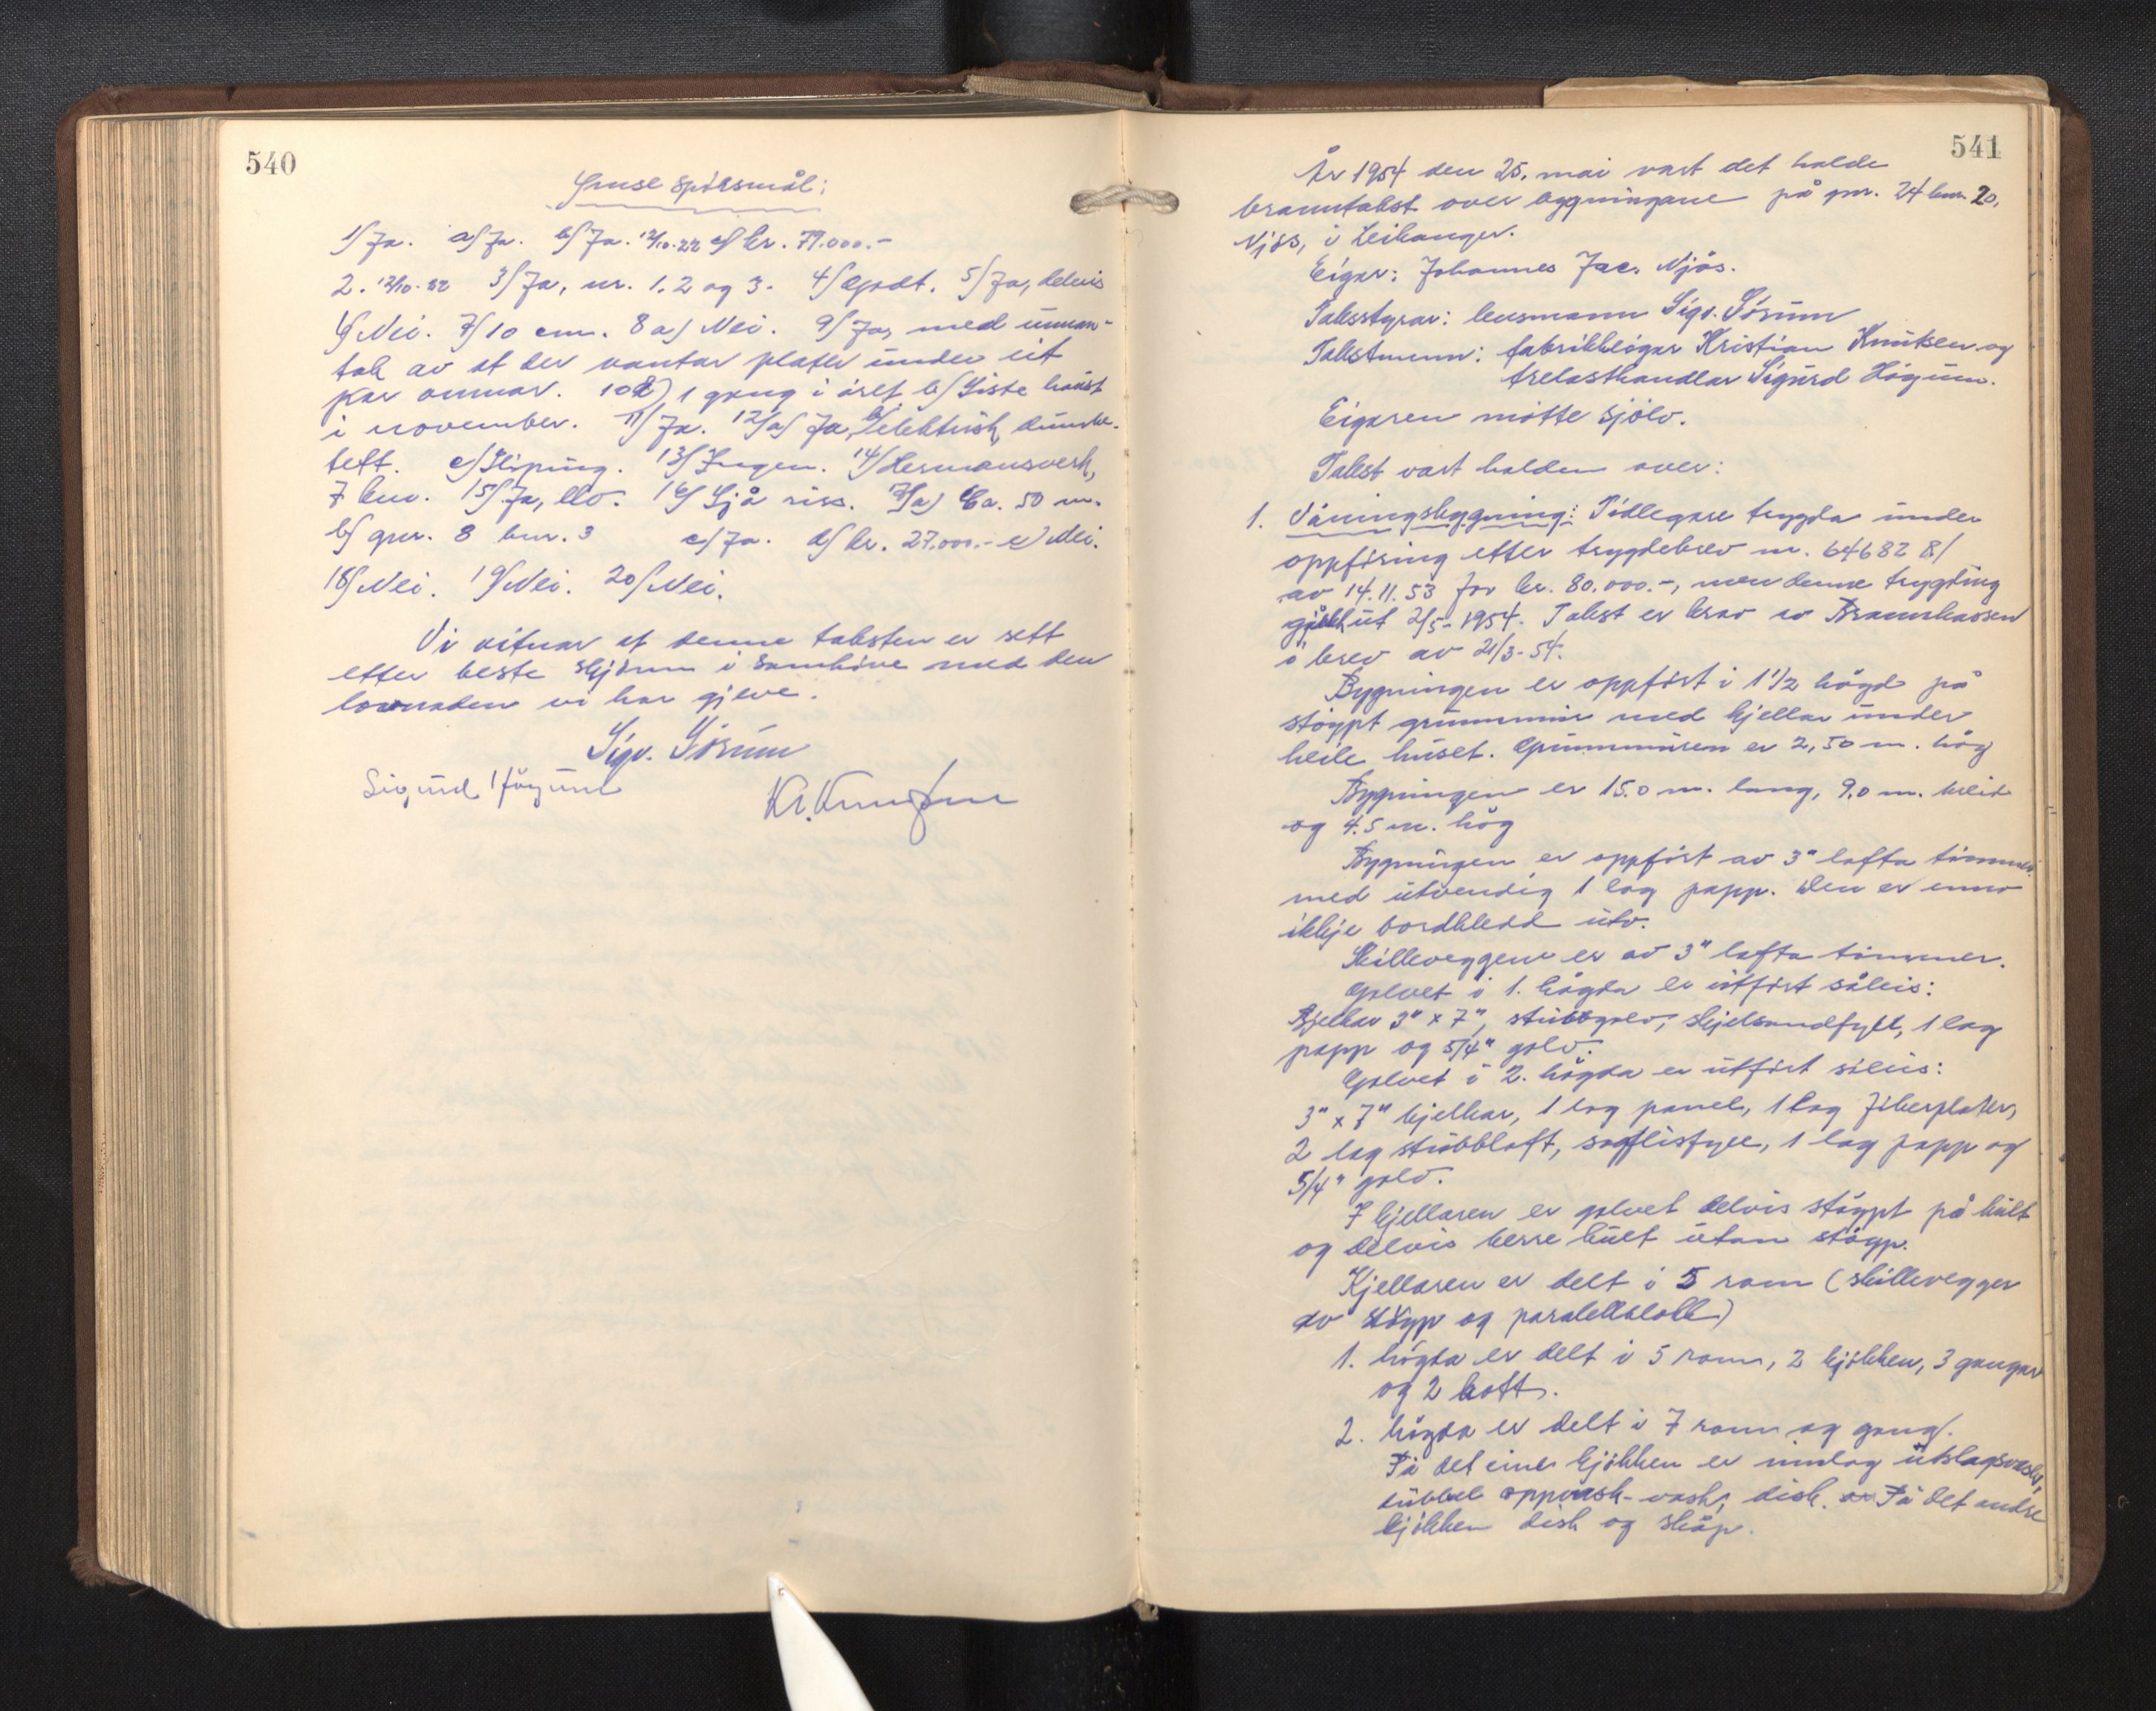 540
Ymse spörsmål:
1/ Ja. a/ Ja. b/ Ja. 12/10-22 c/ kr. 79.000.-
2. 12/10-22 3/ Ja, nr. 1. 2 og 3. 4/ Godt. 5/ Ja, delvis
6/ Nei. 7/ 10 cm. 8 a) Nei. 9/ Ja, med unnan-
tak av at der vantar plater under eit
par omnar. 10 a) 1 gong i året b/ Siste haust
i november. 11/ Ja. 12/a/ Ja, b/ elektrisk,
tett. c/ 13/ Ingen. 14/ Hermansverk,
7 km. 15/ Ja, 16/ Sjå riss. 17/a) Ca. 50 m.
b/ gnr. 8 bnr. 3 c/ Ja. d/ kr. 27.000.- e) Nei.
18/ Nei. 19/ Nei. 20/ Nei.
Vi vitnar at denne taksten er sett
etter beste skjönn i samhöve med den
lovnaden vi har gjeve.
Sigv. Sörum
Sigurd Högum Kr. Knutsen
541
År 1954 den 25. mai vart det halde
branntakst over bygningane på gnr. 24 bnr. 20,
Njös, i Leikanger.
Eigar: Johannes Jac. Njös.
Takststyrar: lensmann Sigv. Sörum
Takstmenn: fabrikkeigar Kristian Knutsen og
trelasthandlar Sigurd Högum.
Eigaren mötte sjölv.
Takst vart halden over:
1. Våningsbygning: Tidlegare trygda under
oppföring etter trygdebrev nr. 64682 8/
av 14.11.53 for kr. 80.000.-, men denne trygding
gjekk ut 2/5-1954. Takst er krav av Brannkassen
i brev av 21/3-54.
Bygningen er oppfört i 1 1/2 högd på
stöypt grunnmur med kjellar under
heile huset. Grunnmuren er 2,50 m. hög
Bygningen er 15.0 m. lang, 9.0 m. breid
og 4.5 m. hög
Bygningen er oppfört av 3" lafta timmer
med utvendig 1 lag papp. Den er enno
ikkje bordkledd utv.
Skilleveggene er av 3" lafta timmer.
Golvet i 1. högda er utfört såleis:
Bjelkar 3" x 7", stubbgolv, skjelsandfyll, 1 lag
papp og 5/4" golv.
Golvet i 2. högda er utfört såleis:
3" x 7" bjelkar, 1 lag panel, 1 lag fiberplater,
2 lag stubbloft, sagflisfyll, 1 lag papp og
5/4" golv.
I kjellaren er golvet delvis stöypt på kult
og delvis berre kult utan stöyp.
Kjellaren er delt i 5 rom (skillevegger
av stöyp og paralellblokk)
1. högda er delt i 5 rom, 2 kjökken, 3 gangar
og 2 kott.
2. högda er delt i 7 rom og gang.
På det eine kjökken er innlag utslagsvask,
dubbel oppvask-vask, disk. På det andre
kjökken disk og skåp.